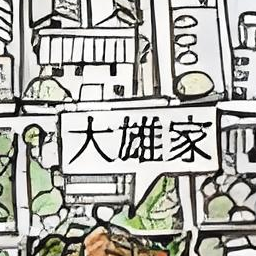 大雄家